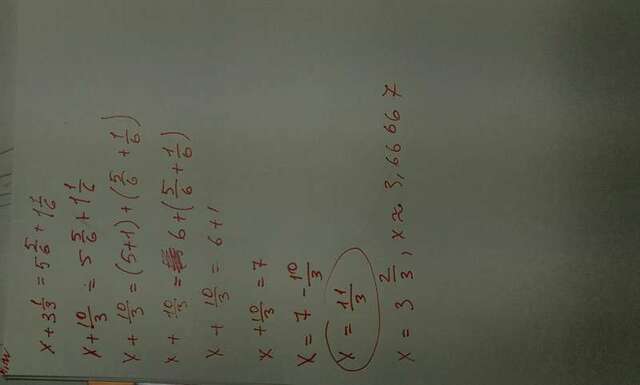 x + 3 1/3 = 5 5/6 + 1 1/6
x + 10/3 = 5 5/6 + 1 1/6
x + 10/3 = (5+1) + (5/6 + 1/6)
x + 10/3 = 6 + (5/6 + 1/6)
x + 10/3 = 6 + 1
x + 10/3 = 7
x = 7 - 10/3
x = 11/3
x = 3 2/3, x ≈ 3,666667